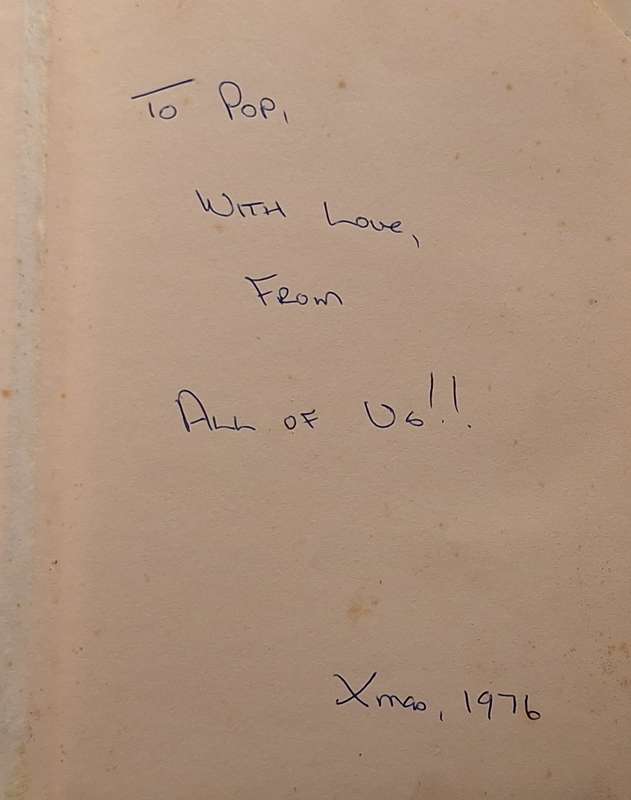 To Pop,
With Love,
From
All of Us!!
Xmas, 1976